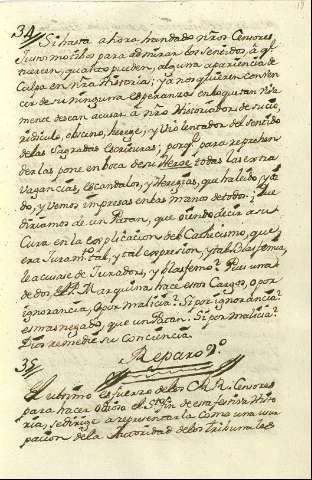 34
Si hasta ahora han dado nros Censores
justo motibo para admirar los sensatos, à q.
tuercen, quanto pueden, alguna apariencia de
Culpa en nra Historia; ya nos quieren conven
cer de su ninguna esperanza en lo que tan
mente desean acusar à nro Historiador de sucio
ridiculo, obsceno, herege, y Violentador del sentido
de las Sagradas Escrituras; porq. para reprehen
derlas pone en boca de su Heroe todas las extra
vagancias, escandalos, y heregias, que ha leido, y oi
do, y vemos impresas en las manos de todos. Que
diriamos de un Patan, que oiendo decir a su
Cura en la explicacion del Cathecismo, que
era Juram.to tal, y tal expresion, y tal Blasfemia,
le acusase de Jurador, y Blasfemo? Pues una
de dos, el P. Marquina hace estos Cargos, ò por
ignorancia, ò por malicia? Si por ignorancia?
es mas negado, que un Patan. Si por malicia?
Dios remedie su Conciencia.
Reparo 9.º
35
El ultimo esfuerzo de los M. R. Censores
para hacer odioso el S.to fin de esta festiva Histo
ria, se dirige a representarla como una usur
pacion de la Autoridad de los Tribunales